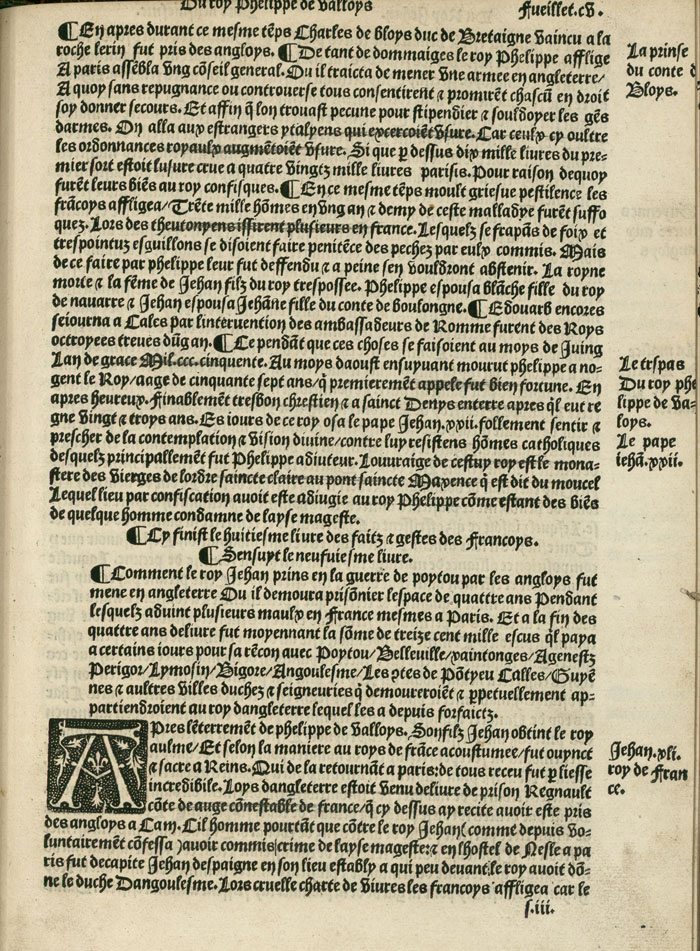 Du roy Phelippe de valloys
Fueillet.cv.
¶ En apres durant ce mesme tẽps Charles de bloys duc de Bretaigne vaincu a la
roche lerin fut pris des angloys. ¶ De tant de dommaiges le roy Phelippe afflige
A paris assẽbla vng cõseil general. Ou il traicta de mener vne armee en angleterre/
A quoy sans repugnance ou controuerse tous consentirent ⁊ promirẽt chascũ en droit
soy donner secours. Et affin q̃ lon trouast pecune pour stipendier ⁊ souldoyer les gẽs
darmes. On alla aux estrangers ytalyens qui exercoiẽt vsure. Car ceulx cy oultre
les ordonnances royaulx augmẽtoiẽt vsure. Si que ꝑ dessus dix mille liures du pre-
mier sort estoit lusure crue a quatre vingtz mille liures parisis. Pour raison dequoy
furẽt leurs biẽs au roy confisques. ¶ En ce mesme tẽps moult griesue pestilence les
frãcoys affligea/Trẽte mille hõmes en vng an ⁊ demy de ceste malladye furẽt suffo
quez. Lors des theutonyens issirent plusieurs en france. Lesquelz se frapãs de foix et
trespointuz esguillons se disoient faire penitẽce des pechez par eulx commis. Mais
de ce faire par phelippe leur fut deffendu ⁊ a peine sen vouldront abstenir. La royne
morte ⁊ la fẽme de Jehan filz du roy trespossee. Phelippe espousa blãche fille du roy
de nauarre ⁊ Jehan espousa Jehãne fille du conte de boulongne. ¶ Edouard encores
seiourna a Cales par linteruention des ambassadeurs de Romme furent des Roys
octroyees treues dũg an. ¶ Ce pendãt que ces choses se faisoient au moys de Juing
Lan de grace Mil.ccc.cinquente. Au moys daoust ensuyuant mourut phelippe a no-
gent le Roy/aage de cinquante sept ans/q̃ premieremẽt appele fut bien fortune. En
apres heureux. Finablemẽt tresbon chrestien ⁊ a sainct Denys enterre apres q̃l eut re
gne vingt ⁊ troys ans. Es iours de ce roy osa le pape Jehan.xxii.follement sentir ⁊
prescher de la contemplation ⁊ vision diuine/contre luy resistens hõmes catholiques
desquelz principallemẽt fut Phelippe adiuteur. Louuraige de cestuy roy est le mona-
stere des vierges de lordre saincte claire au pont saincte Maxence q̃ est dit du moucel
Lequel lieu par confiscation auoit este adiugie au roy Phelippe cõme estant des biẽs
de quelque homme condamne de layse mageste.
La prinse
du conte d
Bloys.
Le trspas
Du roy phe
lippe de va-
loys.
Le pape
iehã.xxii.
¶ Cy finist le huitiesme liure des faitz ⁊ gestes des Francoys.
¶ Sensuyt le neufuiesme liure.
¶ Comment le roy Jehan prins en la guerre de poytou par les angloys fut
mene en angleterre Ou il demoura prisõnier lespace de quattre ans Pendant
lesquelz aduint plusieurs maulx en France mesmes a Paris. Et a la fin des
quattre ans deliure fut moyennant la sõme de treize cent mille escus q̃l paya
a certains iours pour sa rẽcon auec Poytou/Belleuille/xaintonges/Agenestz
Perigor/Lymosin/Bigore/Angoulesme/Les ptes de Põtyeu Calles/Guyẽ
nes ⁊ aultres villes duchez ⁊ seigneuries q̃ demoureroiẽt ⁊ ꝑpetuellement ap-
partiendroient au roy dangleterre lequel les a depuis forfaictz.
APres lẽterremẽt de phelippe de valloys. Son filz Jehan obtint le roy
aulme/Et selon la maniere au roys de frãce acoustumee/fut ouynct
⁊ sacre a Reins. Qui de la retournãt a paris:de tous receu fut ꝑ liesse
incredibile. Loys dangleterre estoit venu deliure de prison Regnault
cõte de auge cõnestable de france/q̃ cy dessus ay recite auoir este pris
des angloys a Cam. Cil homme pourtãt que cõtre le roy Jehan(comme depuis vo-
luntairemẽt cõfessa )auoir commis crime de layse mageste:⁊ en lhostel de Nesle a pa
ris fut decapite Jehan despaigne en son lieu estably a qui peu deuant le roy auoit dõ-
ne le duche Dangoulesme. Lors cruelle charte de viures les francoys affligea car le
Jehan.xli.
roy de Fran
ce.
s.iii.